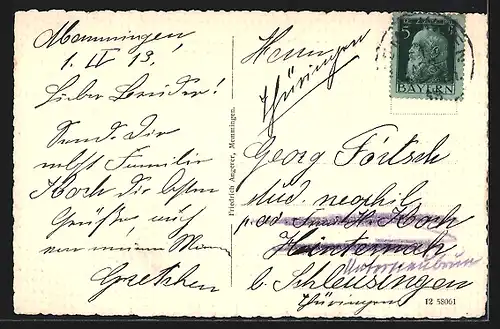 Memmingen
1. IV 13.
Lieber Bruder!
Send. Dir
nebst Familie
Koch die besten
Grüße auch
von meinem Mann
Gretchen
Friedrich Angerer, Memmingen.
Herrn
Thüringen
Georg Förtsch
stud.
p. ad Koch
Hinternah
Unterneubrunn
b. Schleusingen
Thüringen
12 58061
5
BAYERN